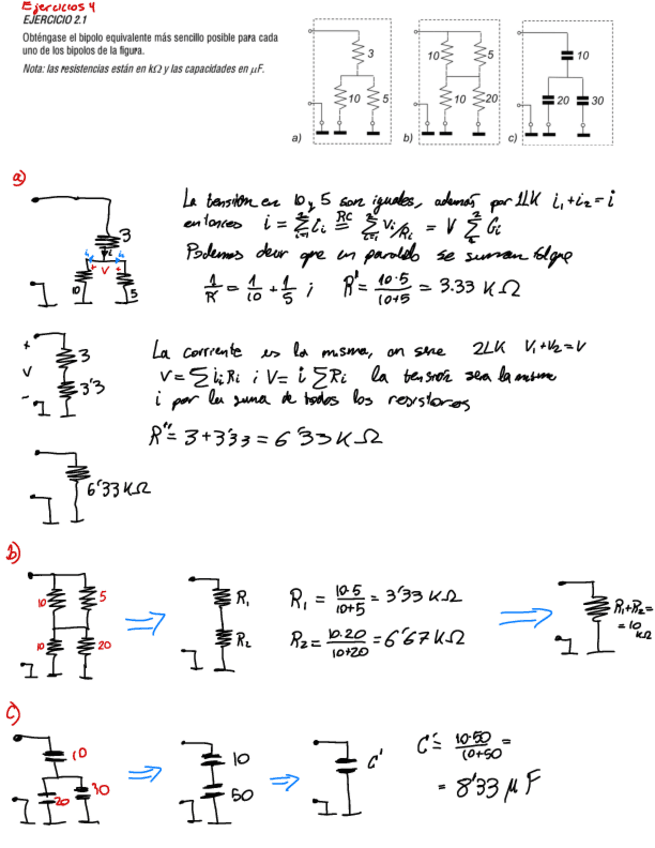 Ejercicios 4
EJERCICIO 2.1
Obténgase el bipolo equivalente más sencillo posible para cada
uno de los bipolos de la figura.
Nota: las resistencias están en kΩ y las capacidades en μF.
3
10
5
a)
10
5
10
20
b)
10
20
30
c)
a)
La tensión en 10 y 5 son iguales, además por 1LK i₁+i₂=i
entonces i = Σ iᵢ RC= Σ Vᵢ/Rᵢ = V Σ Gᵢ
Podemos decir que en paralelo se suman
1/R' = 1/10 + 1/5 ; R' = 10·5/(10+5) = 3.33 KΩ
3
i
+ V +
10
5
La corriente es la misma, en serie 2LK V₁+V₂=V
V = Σ iᵢRᵢ ; V = i ΣRᵢ la tensión sea la misma
i por la suma de todos los resistores
+
V
-
3
3'3
R'' = 3+3'33 = 6'33 KΩ
6'33 KΩ
b)
10
5
10
20
R₁
R₂
R₁ = 10·5/(10+5) = 3'33 KΩ
R₂ = 10·20/(10+20) = 6'67 KΩ
R₁+R₂=
=10
KΩ
c)
10
20
30
10
50
C'
C' = 10·50/(10+50) =
= 8'33 μF